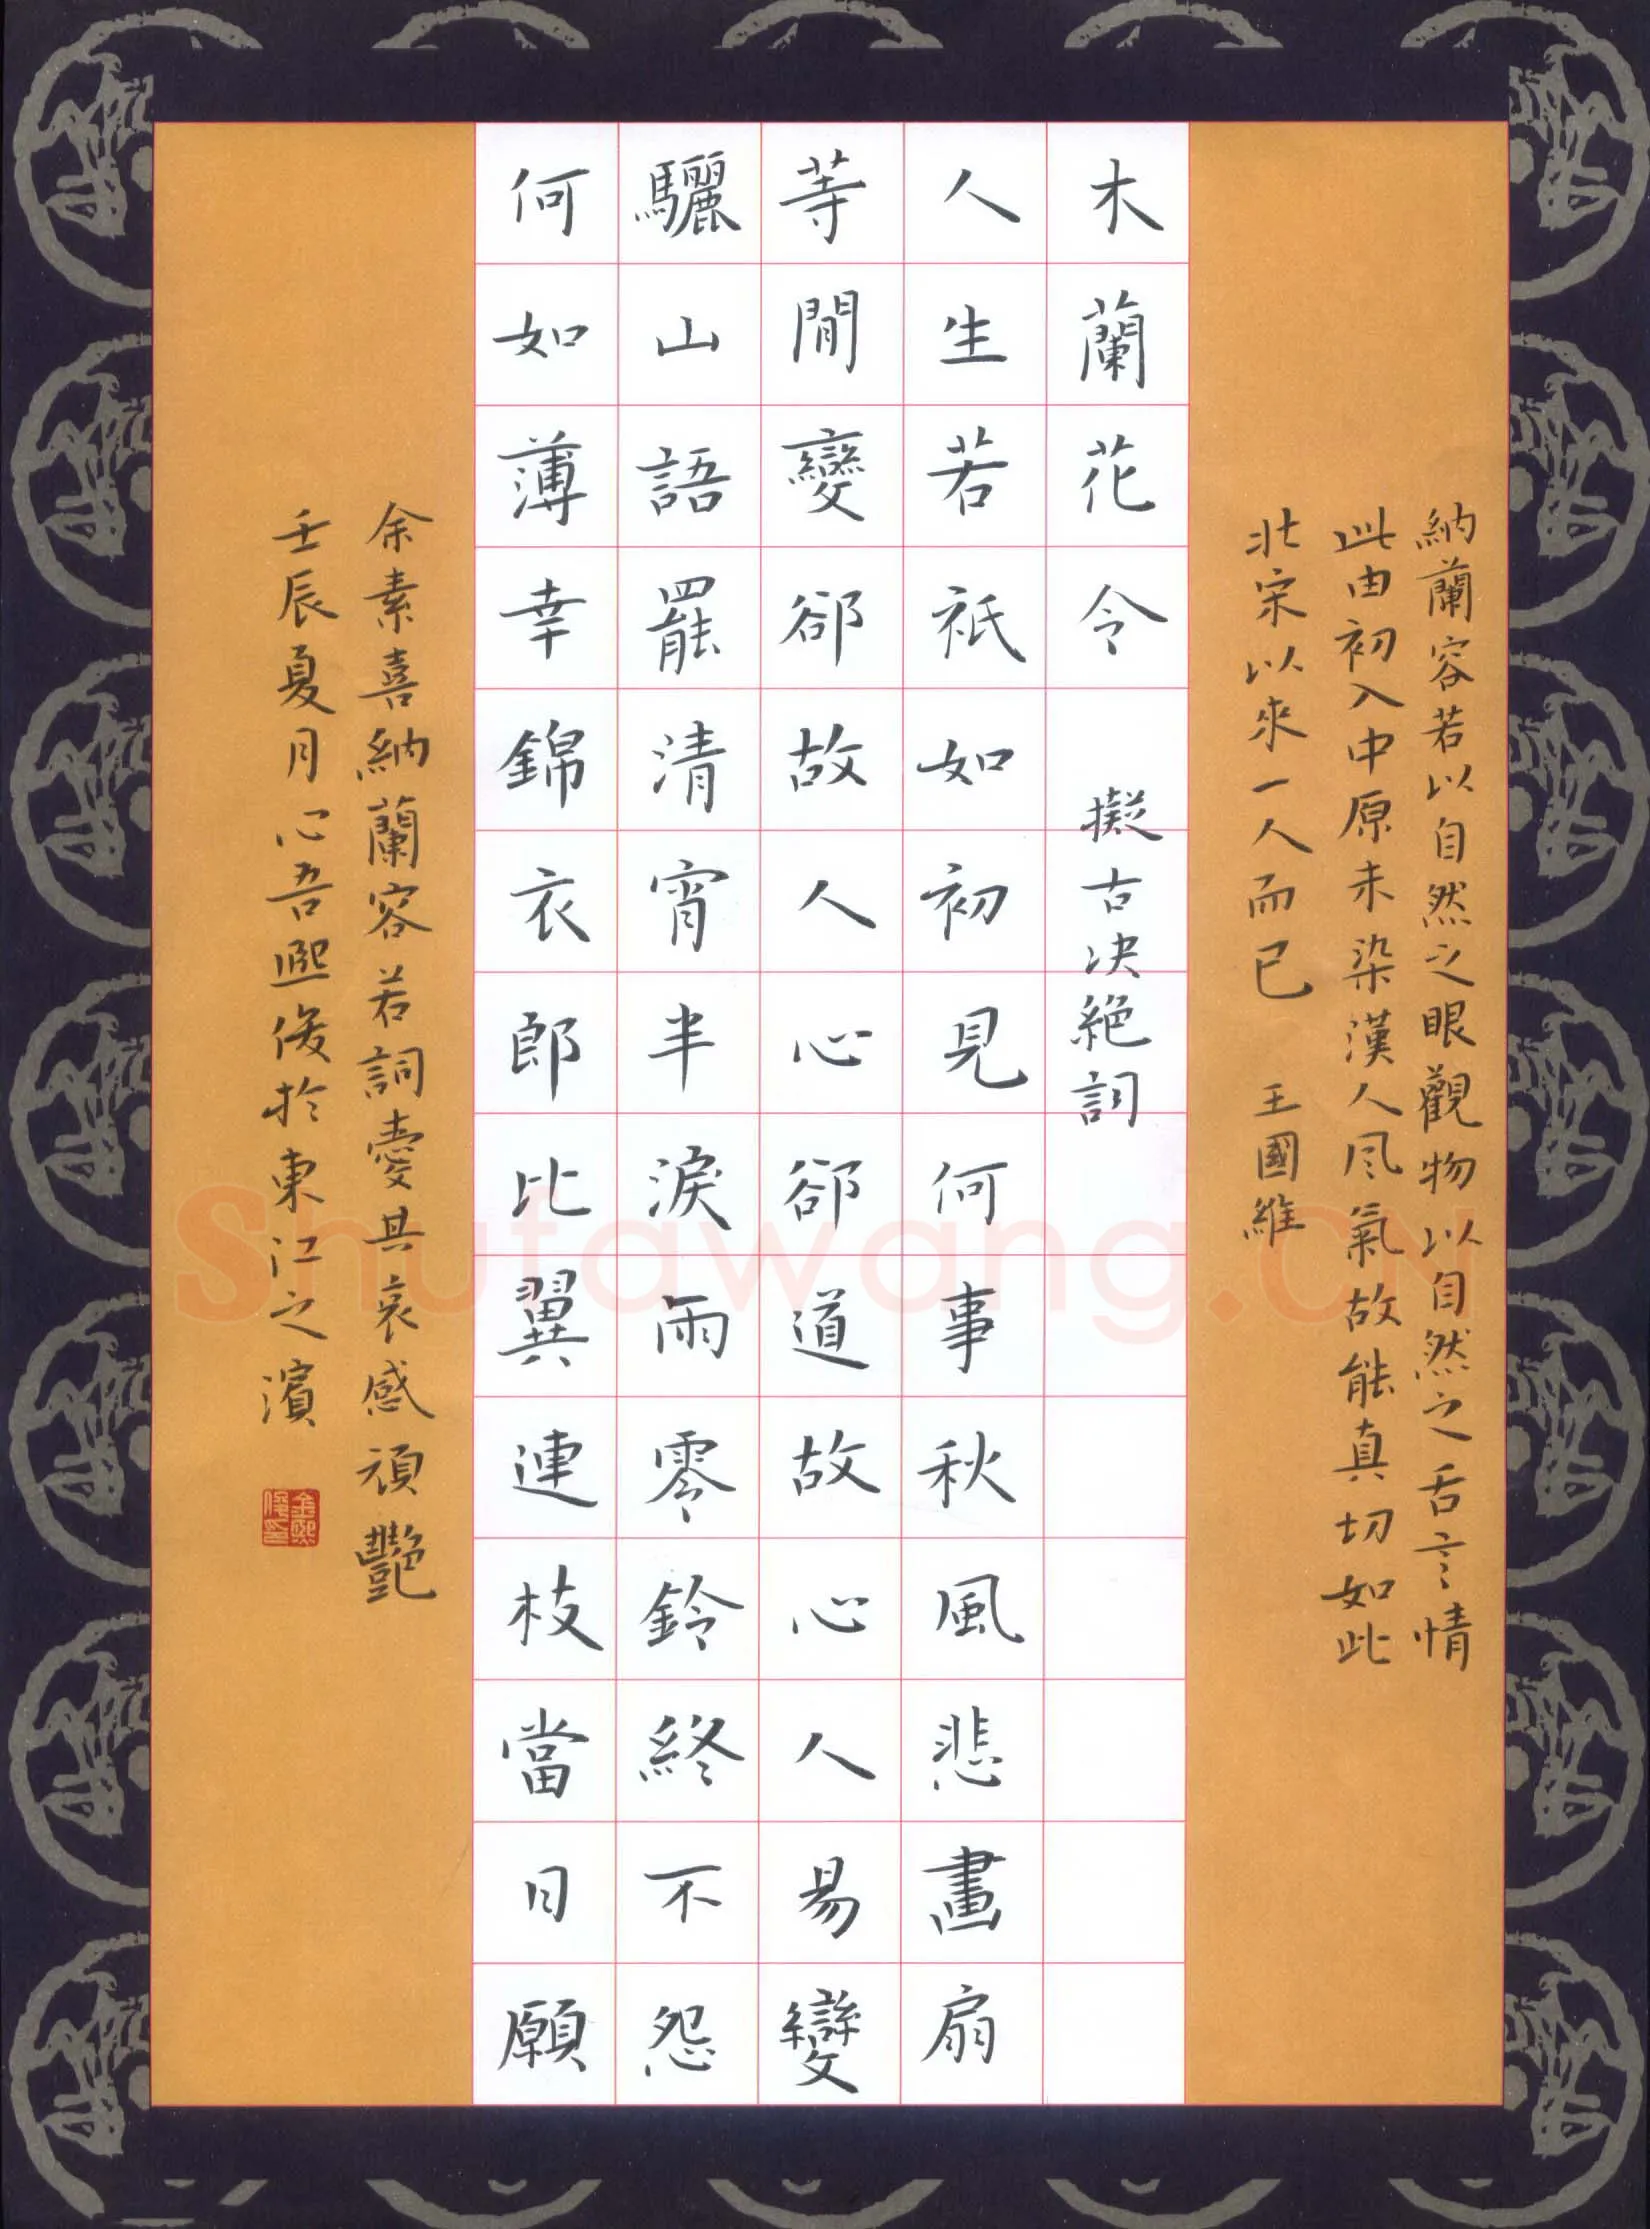 納蘭容若以自然之眼觀物以自然之舌言情
此由初入中原未染漢人风氣故能真切如此
北宋以來一人而已 王國維
木蘭花令 擬古决絕詞
人生若衹如初見何事秋風悲畫扇
等閒變郤故人心郤道故心人易變
驪山語罷清宵半淚雨零鈴終不怨
何如薄幸錦衣郎比翼連枝當日願
余素喜納蘭容若詞愛其哀感頑艷
壬辰夏月心吾熙俊於東江之濱
金熙俊印
Shufawang.CN